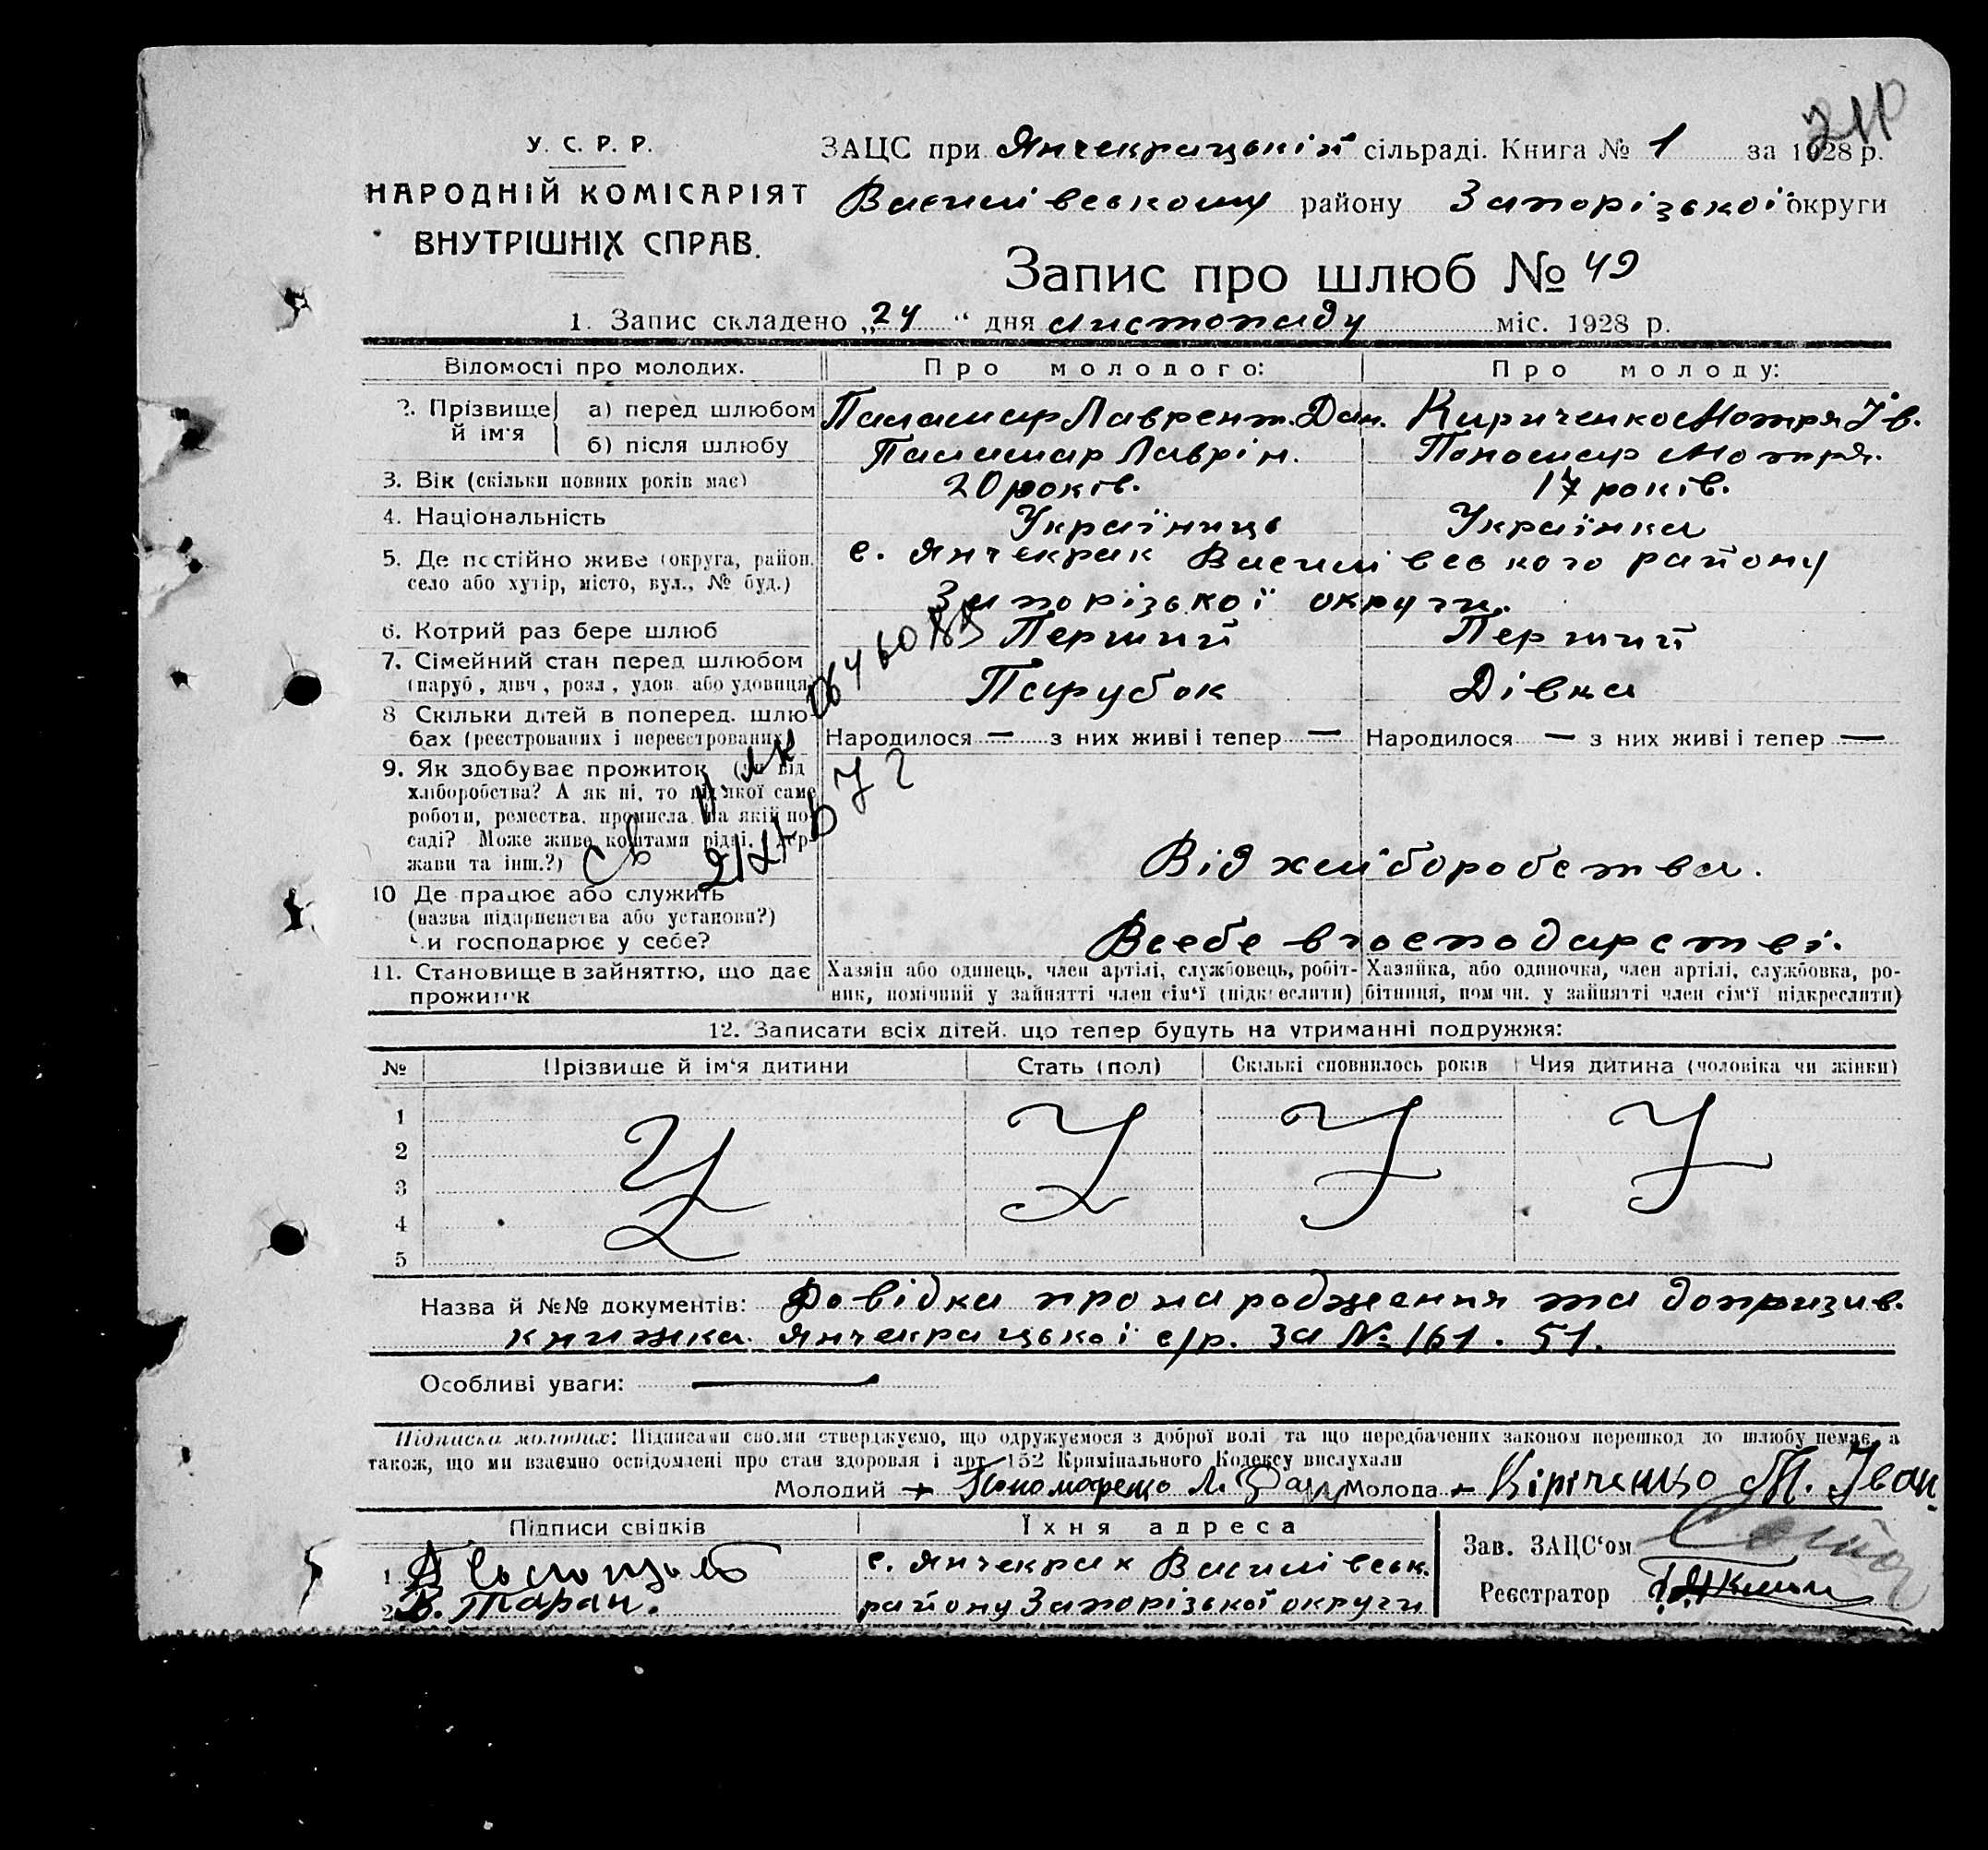 У. С. Р. Р.
НАРОДНІЙ КОМІСАРІЯТ
ВНУТРІШНІХ СПРАВ.
ЗАЦС при Янчекрацькій сільраді. Книга № 1 за 1928 р.
Василівському району Запорізької округи
Запис про шлюб № 49
1. Запис складено „24“ дня листопаду міс. 1928 р.
Відомості про молодих. Про молодого: Про молоду:
2. Прізвище й ім'я а) перед шлюбом Паламар Лаврент. Дан. Кириченко Мотря Ів.
б) після шлюбу Паламар Лаврін. Пономар Мотря.
3. Вік (скільки повних років має) 20 років. 17 років.
4. Національність Україниць Українка
5. Де постійно живе (округа, район, с. Янчекрак Василівського району
село або хутір, місто, вул., № буд.) Запорізької округи.
6. Котрий раз бере шлюб Перший Перший
7. Сімейний стан перед шлюбом
(паруб., дівч., розл., удов. або удовиця) Парубок Дівка
8 Скільки дітей в поперед. шлю-
бах (реєстрованих і нереєстрованих) Народилося — з них живі і тепер — Народилося — з них живі і тепер —
9. Як здобуває прожиток (чи від
хліборобства? А як ні, то від якої саме
роботи, ремества, промисла, на якій по-
саді? Може живе коштами рідні, дер-
жави та інш.?) Від хліборобства.
10 Де працює або служить
(назва підприємства або установи?)
Чи господарює у себе? Всебе в господарстві.
11. Становище в зайняттю, що дає Хазяін або одинець, член артілі, службовець, робіт- Хазяйка, або одиночка, член артілі, службовка, ро-
прожиток ник, помічний у зайнятті член сім'ї (підкреслити) бітниця, помічн. у зайнятті член сім'ї (підкреслити)
12. Записати всіх дітей, що тепер будуть на утриманні подружжя:
№ Прізвише й ім'я дитини Стать (пол) Скількі сповнилось років Чия дитина (чоловіка чи жінки)
1
2
3
4
5
Назва й №№ документів: Довідка про народження та допризив.
книжка Янчекрацької с/р. за № 161. 51.
Особливі уваги: —
Підписка молодих: Підписами своїми стверджуємо, що одружуємося з доброї волі та що передбачених законом перешкод до шлюбу немає, а
також, що ми взаємно освідомлені про стан здоровля і арт. 152 Кримінального Кодексу вислухали
Молодий Л. Молода Кіріченко М. Іван.
Підписи свідків Їхня адреса
Зав. ЗАЦС'ом
1 с. Янчекрак Василівськ.
Реєстратор
2 В. Таран. району Запорізької округи